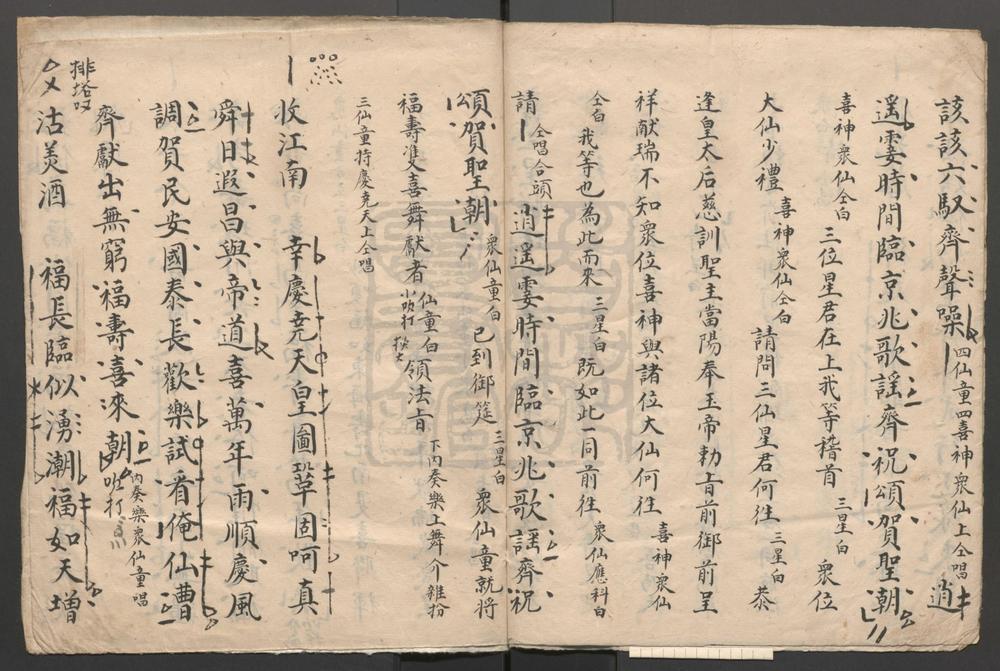 該該六馭齊聲噪 四仙童四喜神衆仙上仝唱 逍
遥霎時間臨京兆歌謡齊祝頌賀聖朝
喜神衆仙仝白 三位星君在上我等稽首 三星白 衆位
大仙少禮 喜神衆仙仝白 請問三仙星君何徃 三星白 恭
逢皇太后慈訓聖主當陽奉玉帝勅旨前御前呈
祥献瑞不知衆位喜神與諸位大仙何徃 喜神衆仙
仝白 我等也為此而來 三星白 既如此一同前徃 衆仙應科白
請 仝唱合頭 逍遥霎時間臨京兆歌謡齊祝
頌賀聖朝 衆仙童白 已到御筵 三星白 衆仙童就將
福壽雙喜舞獻者 仙童白 領法旨 小吹打 下内奏樂上舞介雜扮
三仙童持慶尭天上仝唱
收江南 幸慶尭天皇圖鞏固呵真
舜日遐昌與帝道喜萬年雨順慶風
調賀民安國泰長歡樂試看俺仙漕
齊獻出無窮福壽喜來朝 吹打 内奏樂衆仙童唱
排塔叹
沽美酒 福長臨似湧潮福如天增